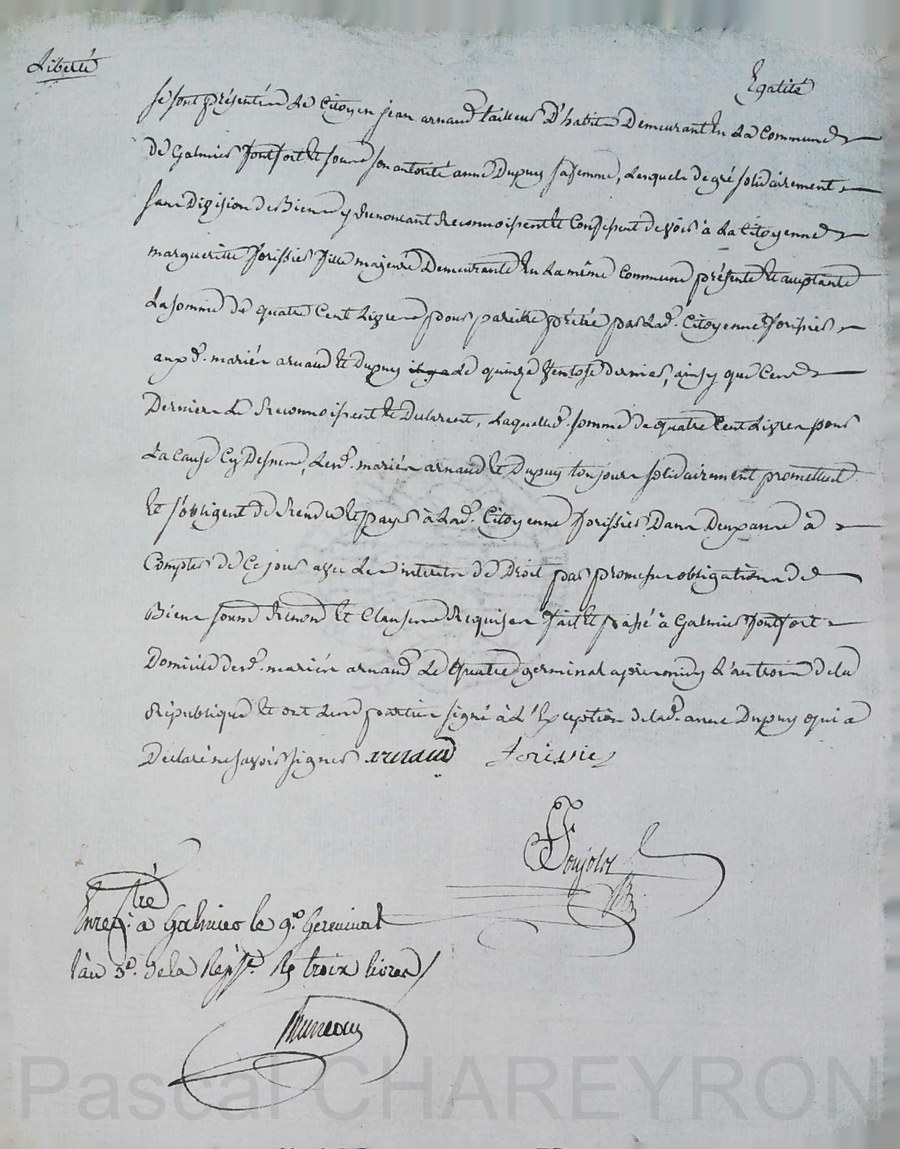 Liberté
Egalité
se sont présentés le Citoyen jean arnaud tailleur D'habits Demeurant En La Commune
de Galmier fontfort Et sous son autorité anne Dupuy sa femme, Lesquels de gré solidairement
sans Division de Biens y Renoncant Reconnoissent Et Confessent devoir à La Citoyenne
margueritte forissier fille majeure Demeurante En La même Commune présente Et acceptante
La somme de quatre Cent Livres pour pareille prêtée par Lad. Citoyenne forissier
auxd. mariés arnaud Et Dupuy Le quinze Ventose dernier, ainsy que Ces
Derniers Le Reconnoissent Et Declarent, Laquelle d. somme de quatre Cent Livres pour
La Cause Cy Dessus, Lesd. mariés arnaud Et Dupuy toujours solidairement promettent
Et s'obligent de Rendre Et payer à Lad. Citoyenne forissier Dans Deux ans à
Compter de Ce jour avec Les interets de Droit par promesses obligations de
Biens soum Renon Et Clauses Requises fait Et passé à Galmier fontfort
Domicile desd. mariés arnaud Le quatre germinal après midy L'an trois de la
République Et ont Les parties signé à L'Exception de lad. anne Dupuy qui a
Déclaré ne savoir signer arnaud forissier
Enreg.tré à Galmier le 9.e Germinal
l'an 3e. de la Rép. R trois livres
Pascal CHAREYRON